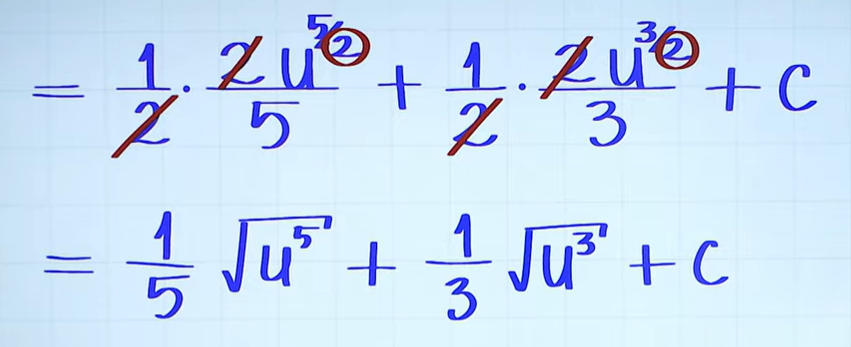 = 1/2 · 2u^(5/2)/5 + 1/2 · 2u^(3/2)/3 + c
= 1/5 √u^5 + 1/3 √u^3 + c